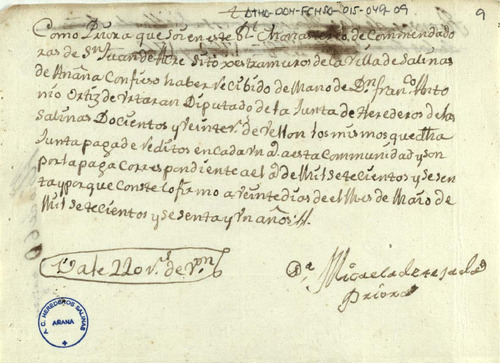 ATHA-DAH-FCHSA-015-049-09
9
Como Priora que soi en este Rl. Monasterio de Comendado
ras de Sn. Juan de Acre sito extramuros de la Villa de Salinas
de Añana Confieso haber recibido de Mano de Dn. franco. Anto
nio Ortiz de Vrtaran Diputado de la Junta de Herederos de las
Salinas Docientos y veinte rs. de Vellon los mismos que dha
Junta paga de reditos en cada vn a. a esta Communidad y son
por la paga correspondiente a el a. de Mil setecientos y sesen
ta y por que conste lo firmo a veinte dios de el Mes de Maio de
Mil setecientos y sesenta y vn años
Vale 220 rs. de vn.
Da. Micaela de
Priora
A. C. HEREDEROS SALINAS
AÑANA